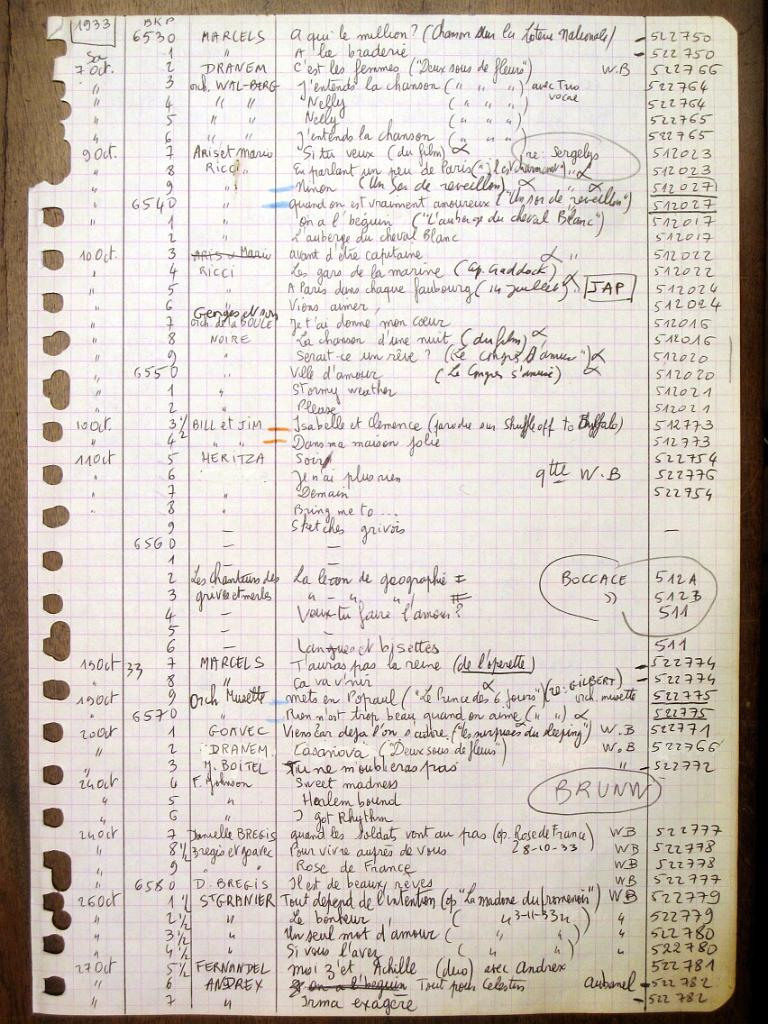 1933 BKP
6530 MARCELS A qui le million? (Chanson sur la Loterie Nationale) - 522750
Sa 1 " A la braderie - 522750
7 Oct. 2 DRANEM C'est les femmes ("Deux sous de fleurs") W.B 522766
" 3 orch. WAL-BERG J'entends la chanson ( " " " ) avec Trio vocal 522764
" 4 " " Nelly ( " " " ) 522764
" 5 " " Nelly ( " " " ) 522765
" 6 " " J'entends la chanson ( " " " ) 522765
9 Oct. 7 Aris et mario Si tu veux (du film) α (re: Sergelys 512023
" 8 Ricci " En parlant un peu de Paris ( " ) α 512023
" 9 " Ninon (Un soir de reveillon) α " α 512027
" 6540 " quand on est vraiment amoureux ("Un soir de reveillon") 512027
" 1 " on a l'béguin ("L'auberge du cheval Blanc") 512017
2 " L'auberge du cheval Blanc 512017
10 Oct. 3 ARIS et Mario avant d'être capitaine α " 512022
" 4 RICCI Les gars de la marine (Cap. Craddock) 512022
" 5 " A Paris dans chaque faubourg (14 juillet) α JAP 512024
" 6 " Viens aimer, 512024
" 7 Georges et son orch. de la BOULE Je t'ai donné mon cœur 512016
" 8 NOIRE La chanson d'une nuit (du film) α 512016
" 9 " Serait-ce un rêve? (Le Congrès s'amuse") α 512020
" 6550 " Ville d'amour (Le Congrès s'amuse) α 512020
" 1 " Stormy weather 512021
" 2 " Please 512021
10 Oct 3 1/2 BILL et JIM Isabelle et Clemence (parodie sur Shuffle off to Buffalo) 512773
" 4 1/2 " " Dans ma maison jolie 512773
11 Oct 5 MERITZA Soir 522754
" 6 " Je n'ai plus rien qtte W.B 522776
" 7 " Demain 522754
" 8 " Bring me to...
9 — Sketches grivois —
6560 — —
1 —
2 Les chanteurs des La leçon de geographie I BOCCACE 512A
3 grives et merles " - " - " II " 512B
4 — Veux-tu faire l'amour? 511
5 — -
6 — Langues et bisettes 511
19 Oct 33 7 MARCELS T'auras pas la reine (de l'operette) - 522774
" 8 " Ça va v'nir - 522774
19 Oct 9 Orch Musette mets en Popaul ("Le Prince des 6 jours") (re: GILBERT) orch. musette 522775
" 6570 " Rien n'est trop beau quand on aime ( " " ) α 522775
20 Oct 1 GOAVEC Viens car déjà l'on s'adore ("les surprises du sleeping") W.B - 522771
" 2 DRANEM Casanova ("Deux sous de fleurs") W.B 522766
" 3 M. BOITEL Tu ne m'oublieras pas " - 522772
24 Oct 4 F. Johnson Sweet madness
" 5 " Harlem bound BRUNW
" 6 " I got Rhythm
24 Oct 7 Danielle BREGIS quand les soldat vont au pas (op. Rose de France) WB 522777
" 8 1/2 Bregis et Goavec Pour vivre auprès de vous 28-10-33 WB 522778
" 9 " " Rose de France WB 522778
" 6580 D. BREGIS Il est de beaux rêves WB 522777
26 Oct 1 1/2 ST GRANIER Tout depend de l'intention (op "La madone du promenoir") WB 522779
" 2 1/2 " Le bonheur ( " 3-11-33 " ) " 522779
" 3 1/2 " Un seul mot d'amour ( " " ) " 522780
" 4 1/2 " Si vous l'avez ( " " ) " 522780
27 Oct 5 1/2 FERNANDEL moi z'et Achille (duo) avec Andrex 522781
" 6 ANDREX on a l'beguin Tout pour Celestin Aubanel - 522782
" 7 " Irma exagère - 522782